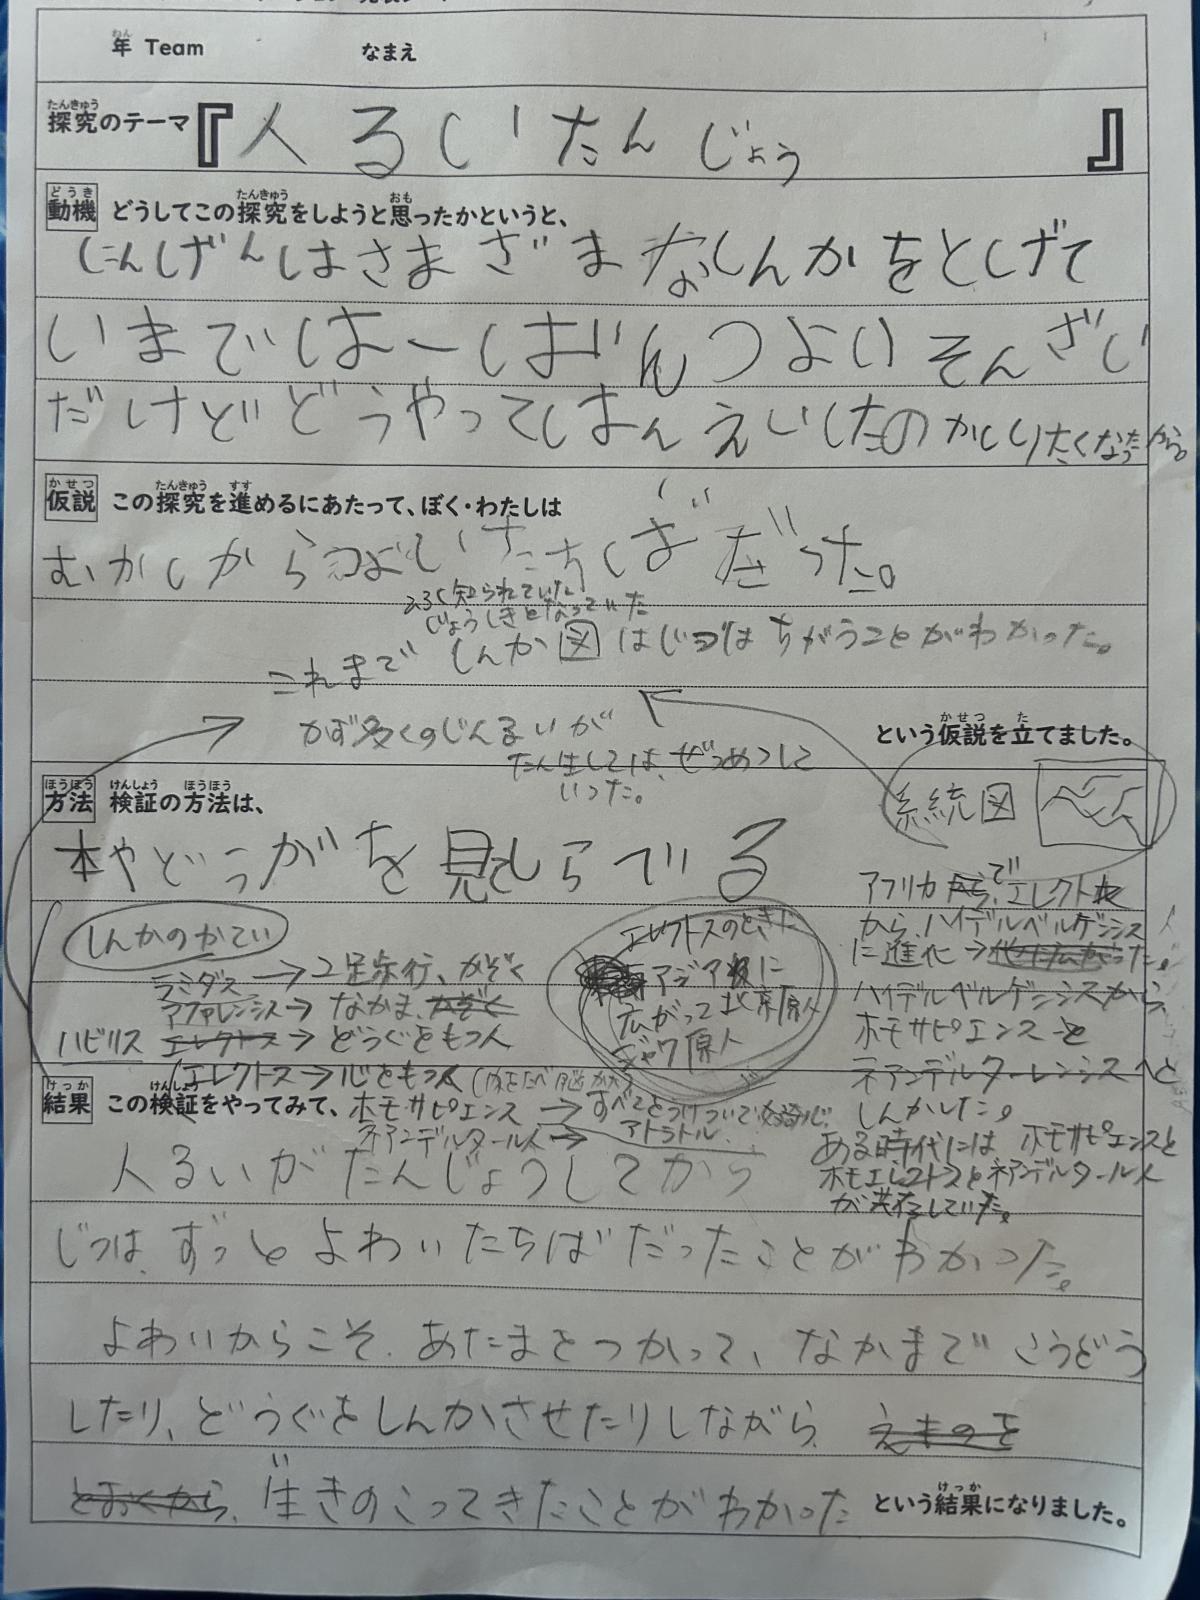 年 Team なまえ
探究のテーマ『人るいたんじょう』
動機 どうしてこの探究をしようと思ったかというと、
にんげんはさまざまなしんかをとげて
いまでは一ばんつよいそんざい
だけどどうやってはんえいしたのかしりたくなったから。
仮説 この探究を進めるにあたって、ぼく・わたしは
むかしからつよいたちばだった。
知られていた
じょうしきとなっていた
これまで しんか図はじつはちがうことがわかった。
かず多くのじんるいが
たん生しては、ぜつめつして
いった。
という仮説を立てました。
方法 検証の方法は、
系統図
本やどうがを見てしらべる
しんかのかてい
ラミダス→2足歩行、かぞく
アファレンシス→なかま、かぞく
ハビリス エレクトス→どうぐをもつ人
エレクトス→心をもつ人
ホモサピエンス→
ネアンデルタール人→アトラトル
エレクトスのときに
アジアに
広がって北京原人
ジャワ原人
アフリカで、エレクトス
から、ハイデルベルゲンシス
に進化→
ハイデルベルゲンシスから
ホモサピエンスと
ネアンデルターレンシスへと
しんかした。
ある時代には ホモサピエンスと
ホモエレクトスとネアンデルタール人
が共存していた。
結果 この検証をやってみて、
人るいがたんじょうしてから
じつは、ずっとよわいたちばだったことがわかった。
よわいからこそ、あたまをつかって、なかまでこうどう
したり、どうぐをしんかさせたりしながら、えものを
とおくから、生きのこってきたことがわかった という結果になりました。